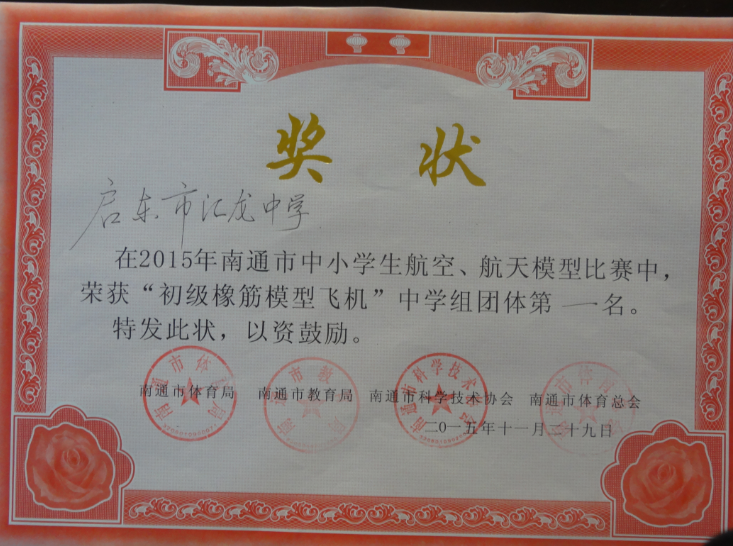 奖 状
启东市汇龙中学
在2015年南通市中小学生航空、航天模型比赛中，
荣获“初级橡筋模型飞机”中学组团体第 一名。
特发此状，以资鼓励。
南通市体育局 南通市教育局 南通市科学技术协会 南通市体育总会
二〇一五年十一月二十九日